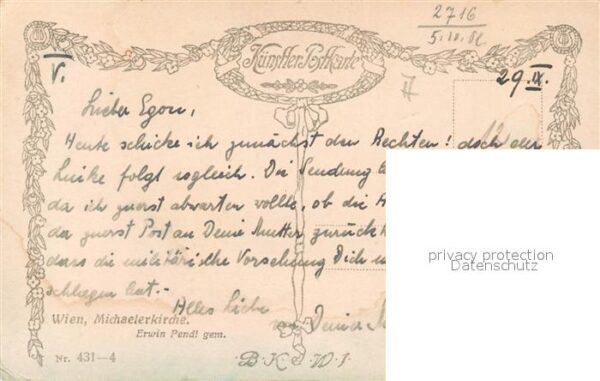 2716
5. IX.
Künstler Postkarte
V.
29. IX.
Lieber Egon,
Heute schicke ich zunächst den Rechten! doch der
Linke folgt sogleich. Die Sendung
da ich zuerst abwarten wollte, ob die
da zuerst Post an Deine Mutter zurück
dass die militärische Vorsehung Dich
schlagen hat.-
Alles Liebe
von Deiner
Wien, Michaelerkirche.
Erwin Pendl gem.
Nr. 431—4
B.K.W.I.
privacy protection
Datenschutz